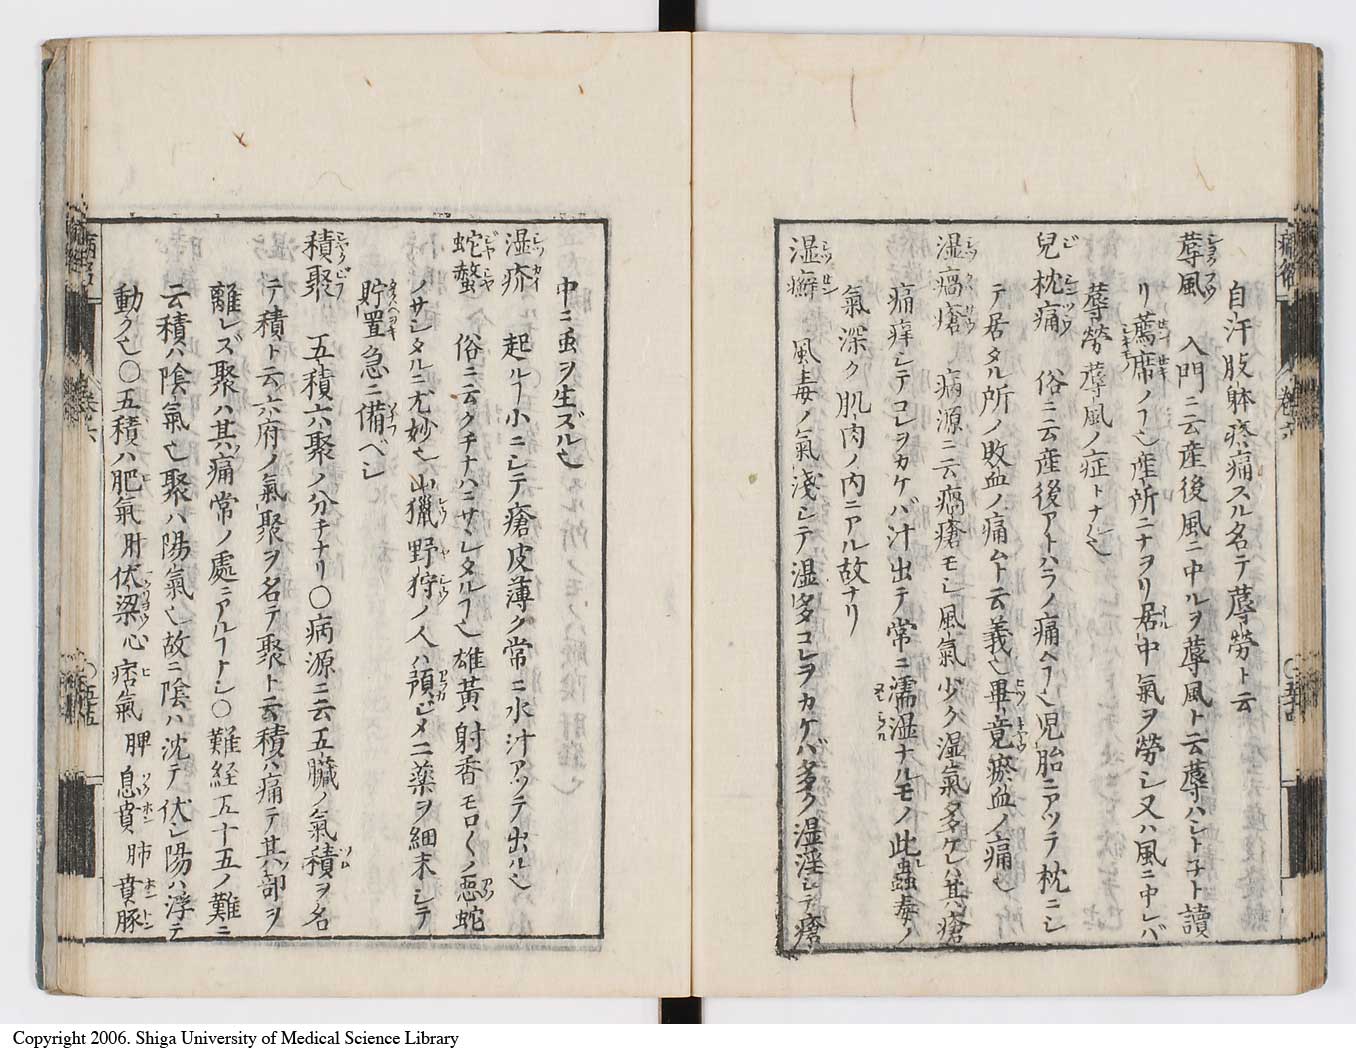 自汗股躰疼痛スル名テ蓐勞ト云
蓐風 入門ニ云産後風ニ中ルヲ蓐風ト云蓐ハシト子ト讀
リ薦席ノヿ也産所ニナヲリ居中氣ヲ勞シ又ハ風ニ中レバ
蓐勞蓐風ノ症トナル也
兒枕痛 俗ニ云産後アトハラノ痛ムヿ也児胎ニアツテ枕ニシ
テ居タル所ノ敗血ノ痛ムト云義也畢竟瘀血ノ痛也
湿瘑瘡 病源ニ云瘑瘡モシ風氣少ク湿氣多ケレハ其瘡
痛痒シテコレヲカケバ汁出テ常ニ濡湿ナルモノ此蟲毒ノ
氣深ク肌肉ノ内ニアル故ナリ
湿癬 風毒ノ氣淺シテ湿多コレヲカケバ多ク湿淫シテ瘡
中ニ虫ヲ生ズル也
湿疥 起ルヿ小ニシテ瘡皮薄ク常ニ水汁アツテ出ル也
蛇螫 俗ニ云クチナハニサヽレタルヿ也雄黄射香モロ〱ノ悪蛇
ノサシタルニ尤妙也山獵野狩ノ人ハ預ジメ二薬ヲ細末シテ
貯置急ニ備ベシ
積聚 五積六聚ノ分チナリ○病源ニ云五臓ノ氣積ヲ名
テ積ト云六府ノ氣聚ヲ名テ聚ト云積ハ痛テ其部ヲ
離レズ聚ハ其痛常ノ處ニアルヿナシ○難経五十五ノ難ニ
云積ハ陰氣也聚ハ陽氣也故ニ陰ハ沈テ伏シ陽ハ浮テ
動ク也○五積ハ肥氣肝伏梁心痞氣脾息賁肺賁豚
卷六
Copyright 2006. Shiga University of Medical Science Library